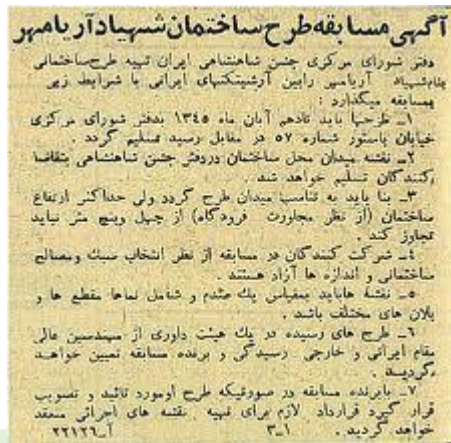 آگهی مسابقه طرح ساختمان شهیاد آریامهر
دفتر شورای مرکزی جشن شاهنشاهی ایران تهیه طرح ساختمانی
بنام شهیاد آریامهر را بین آرشیتکتهای ایرانی با شرایط زیر
بمسابقه میگذارد :
۱ـ طرحها باید تا دهم آبان ماه ۱۳۴۵ بدفتر شورای مرکزی
خیابان پاستور شماره ۵۷ در مقابل رسید تسلیم گردد .
۲ـ نقشه میدان محل ساختمان ودرفش جشن شاهنشاهی بتقاضا
کنندگان تسلیم خواهد شد .
۳ـ بنا باید به تناسب میدان طرح گردد ولی حداکثر ارتفاع
ساختمان (از نظر مجاورت فرودگاه) از چهل وپنج متر نباید
تجاوز کند .
٤ـ شرکت کنندگان در مسابقه از نظر انتخاب سبك ومصالح
ساختمانی و اندازه ها آزاد هستند .
۵ـ نقشه هاباید بمقیاس یك صدم و شامل نماها مقطع ها و
پلان های مختلف باشد .
۶ـ طرح های رسیده در یك هیئت داوری از مهندسین عالی
مقام ایرانی و خارجی رسیدگی و برنده مسابقه تعیین خواهد
گردید .
۷ـ بابرنده مسابقه در صورتیکه طرح اومورد تائید و تصویب
قرار گیرد قرارداد لازم برای تهیه نقشه های اجرائی منعقد
خواهد گردید . ۱ـ۳ آـ۲۲۱۲۶